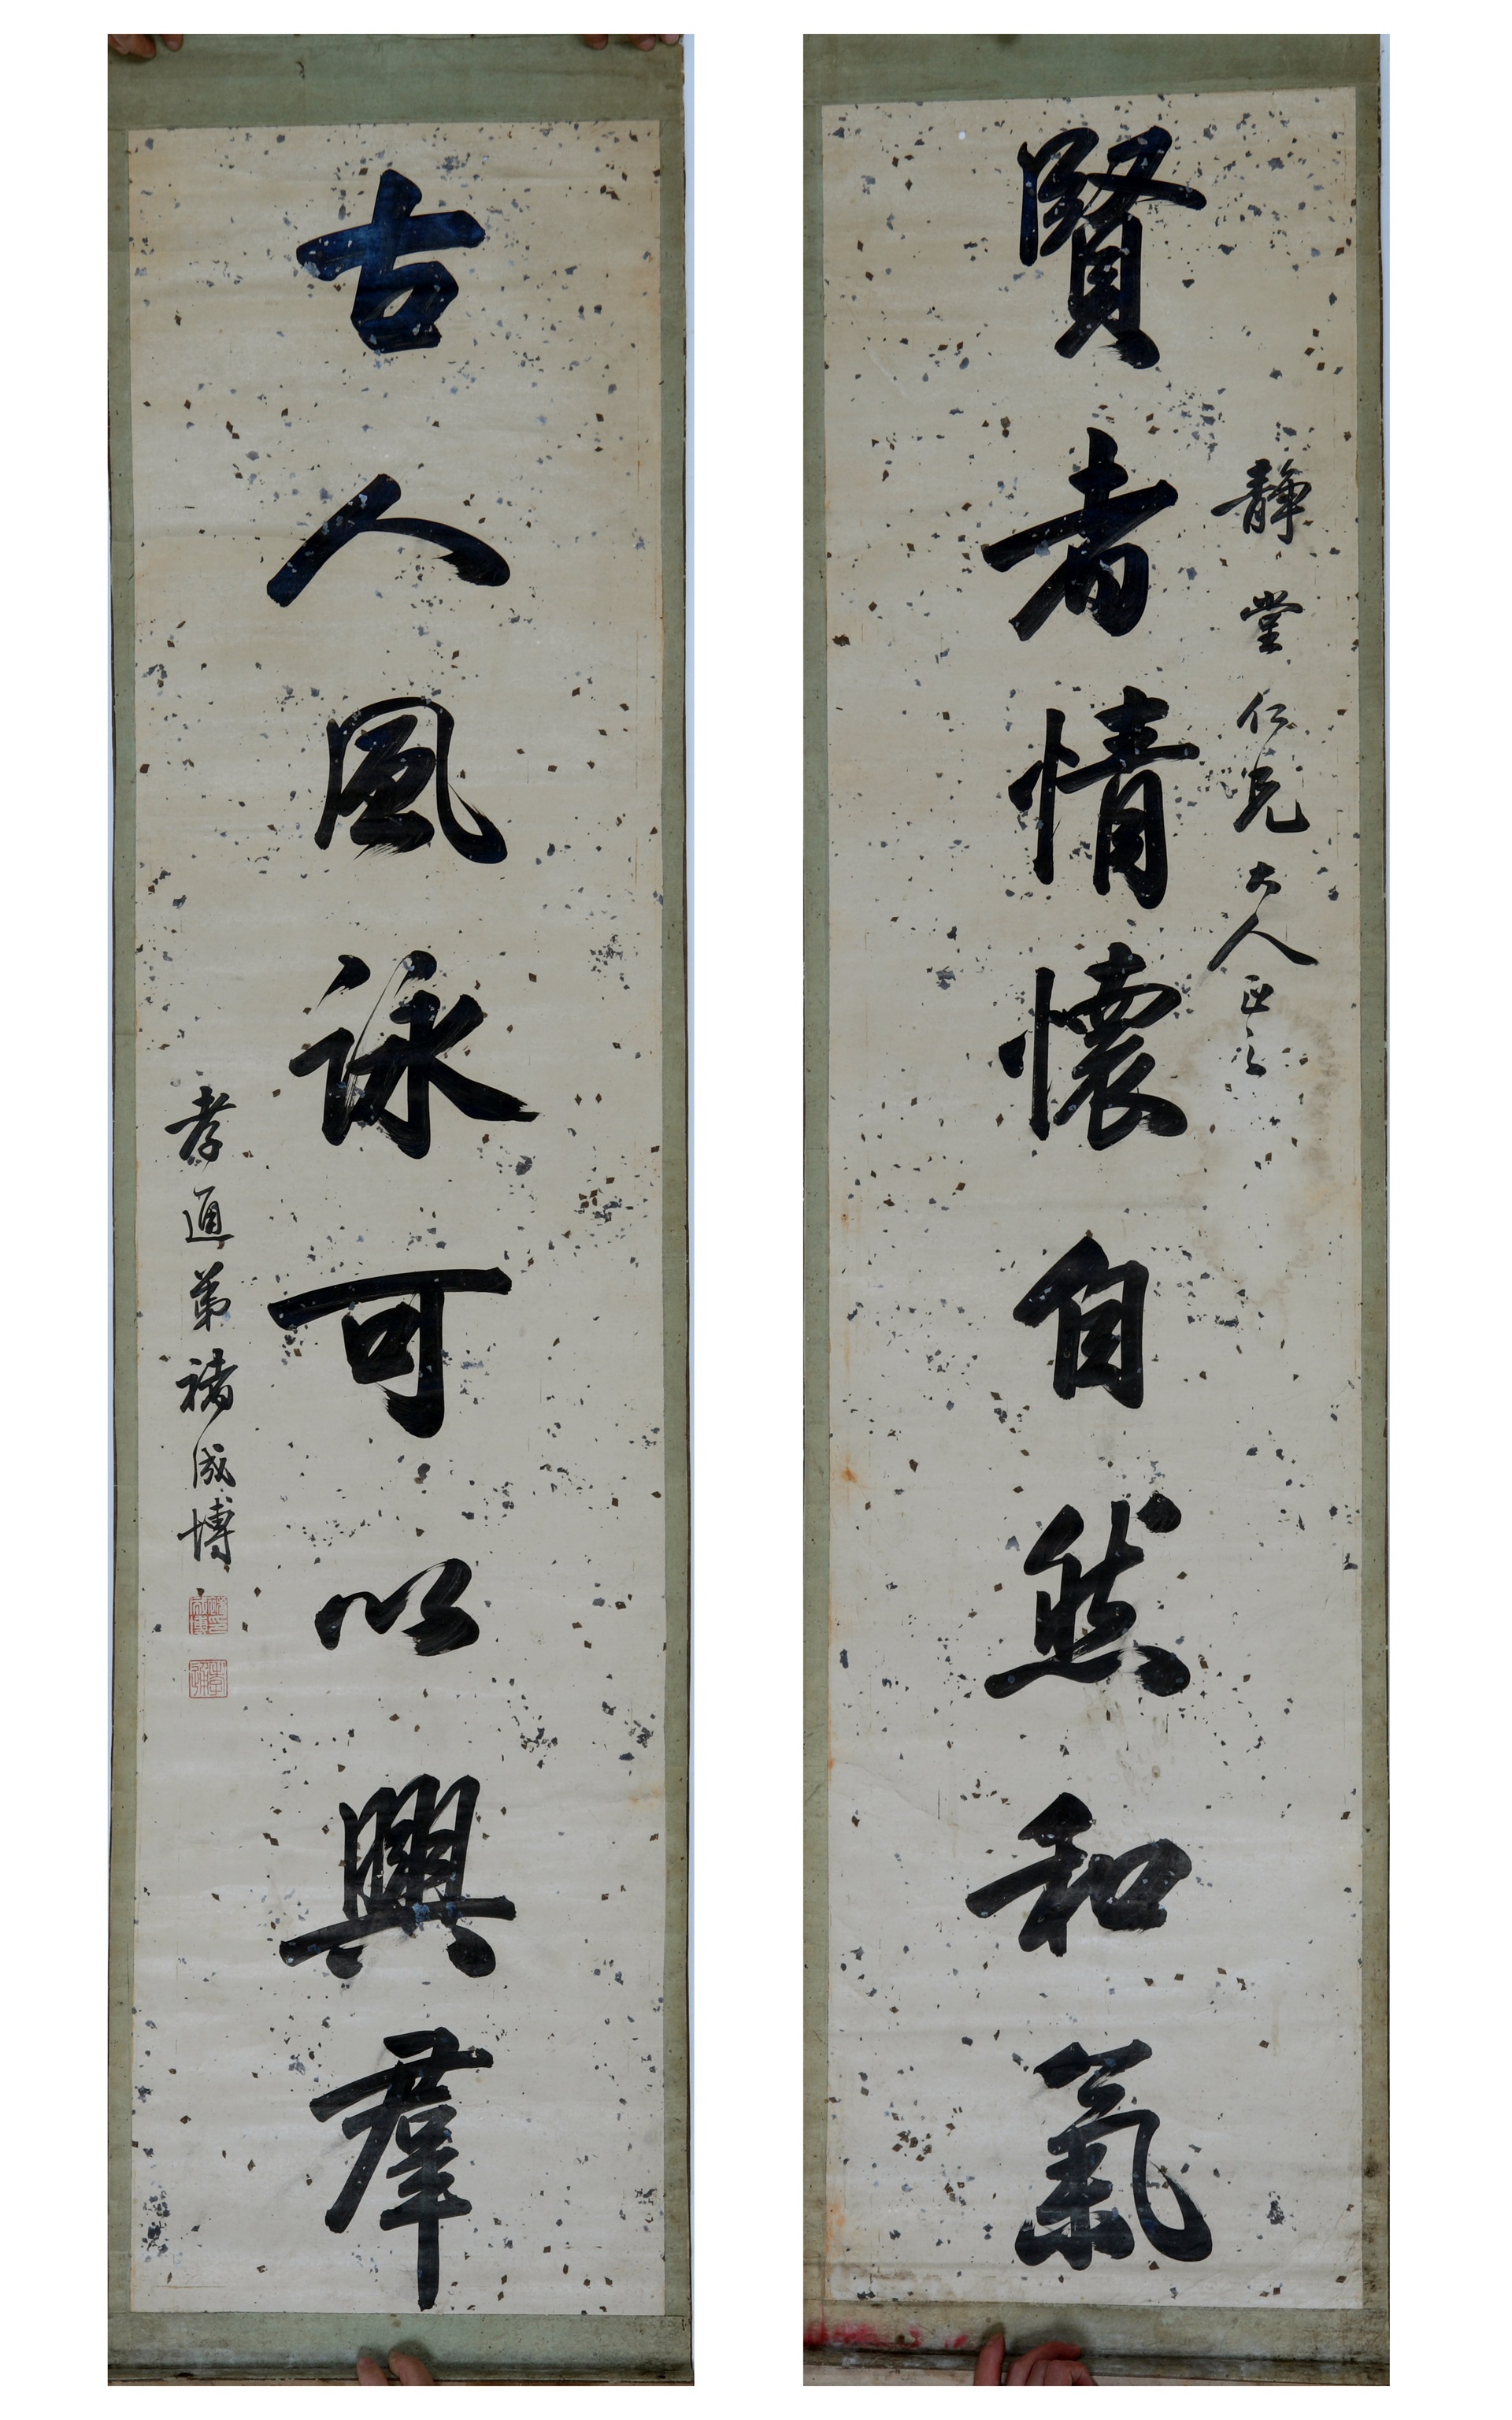 賢者情懷自然和氣
靜堂仁兄大人正之
古人風詠可以興羣
孝通弟褚成博